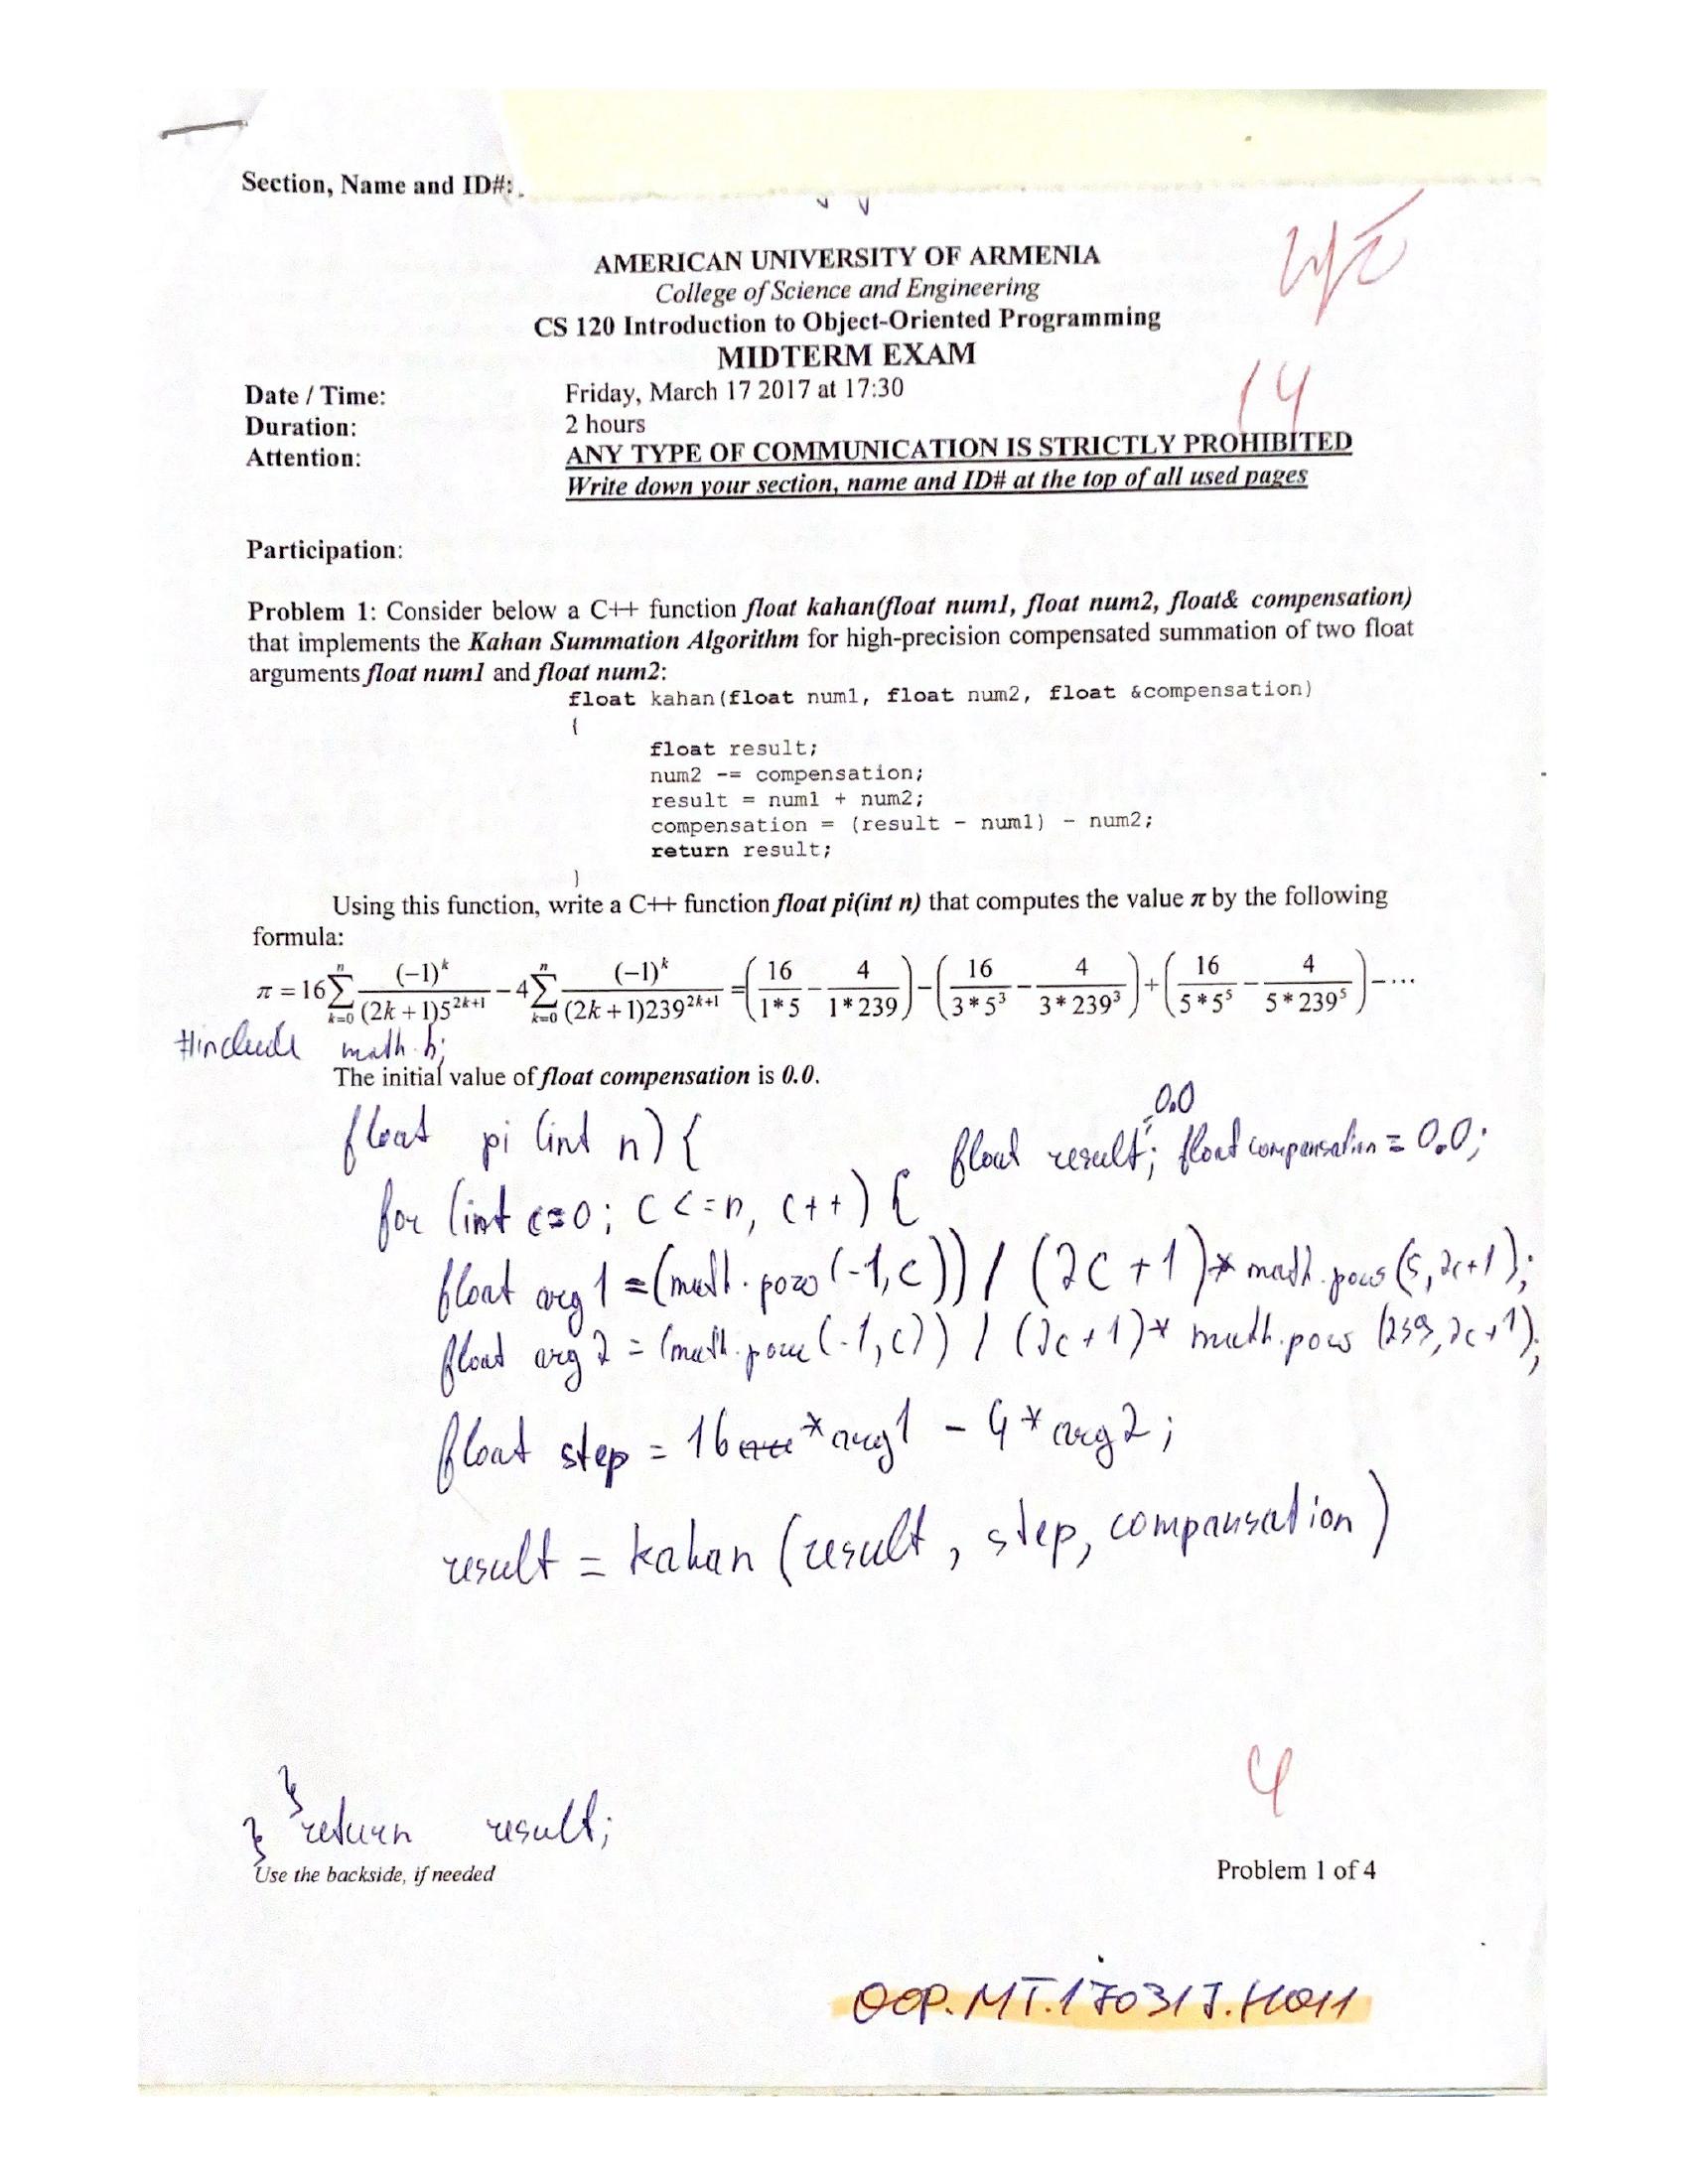 Section, Name and ID#:
AMERICAN UNIVERSITY OF ARMENIA
College of Science and Engineering
CS 120 Introduction to Object-Oriented Programming
MIDTERM EXAM
14
Date / Time: Friday, March 17 2017 at 17:30
Duration: 2 hours
Attention: ANY TYPE OF COMMUNICATION IS STRICTLY PROHIBITED
Write down your section, name and ID# at the top of all used pages
Participation:
Problem 1: Consider below a C++ function float kahan(float num1, float num2, float& compensation)
that implements the Kahan Summation Algorithm for high-precision compensated summation of two float
arguments float num1 and float num2:
float kahan(float num1, float num2, float &compensation)
{
float result;
num2 -= compensation;
result = num1 + num2;
compensation = (result - num1) - num2;
return result;
}
Using this function, write a C++ function float pi(int n) that computes the value π by the following
formula:
π = 16 ∑_{k=0}^{n} (-1)^k / ((2k+1)5^{2k+1}) - 4 ∑_{k=0}^{n} (-1)^k / ((2k+1)239^{2k+1}) = (16/(1*5) - 4/(1*239)) - (16/(3*5^3) - 4/(3*239^3)) + (16/(5*5^5) - 4/(5*239^5)) - ···
#include math.h;
The initial value of float compensation is 0.0.
float pi (int n) { float result = 0.0; float compensation = 0.0;
for (int c=0; c <= n, c++) {
float arg 1 = (math.pow (-1, c)) / (2c + 1) * math.pow (5, 2c+1);
float arg 2 = (math.pow (-1, c)) / (2c + 1) * math.pow (239, 2c+1);
float step = 16 * arg1 - 4 * arg2;
result = kahan (result, step, compansation)
}
} return result;
4
Use the backside, if needed
Problem 1 of 4
OOP.MT.170317.H011